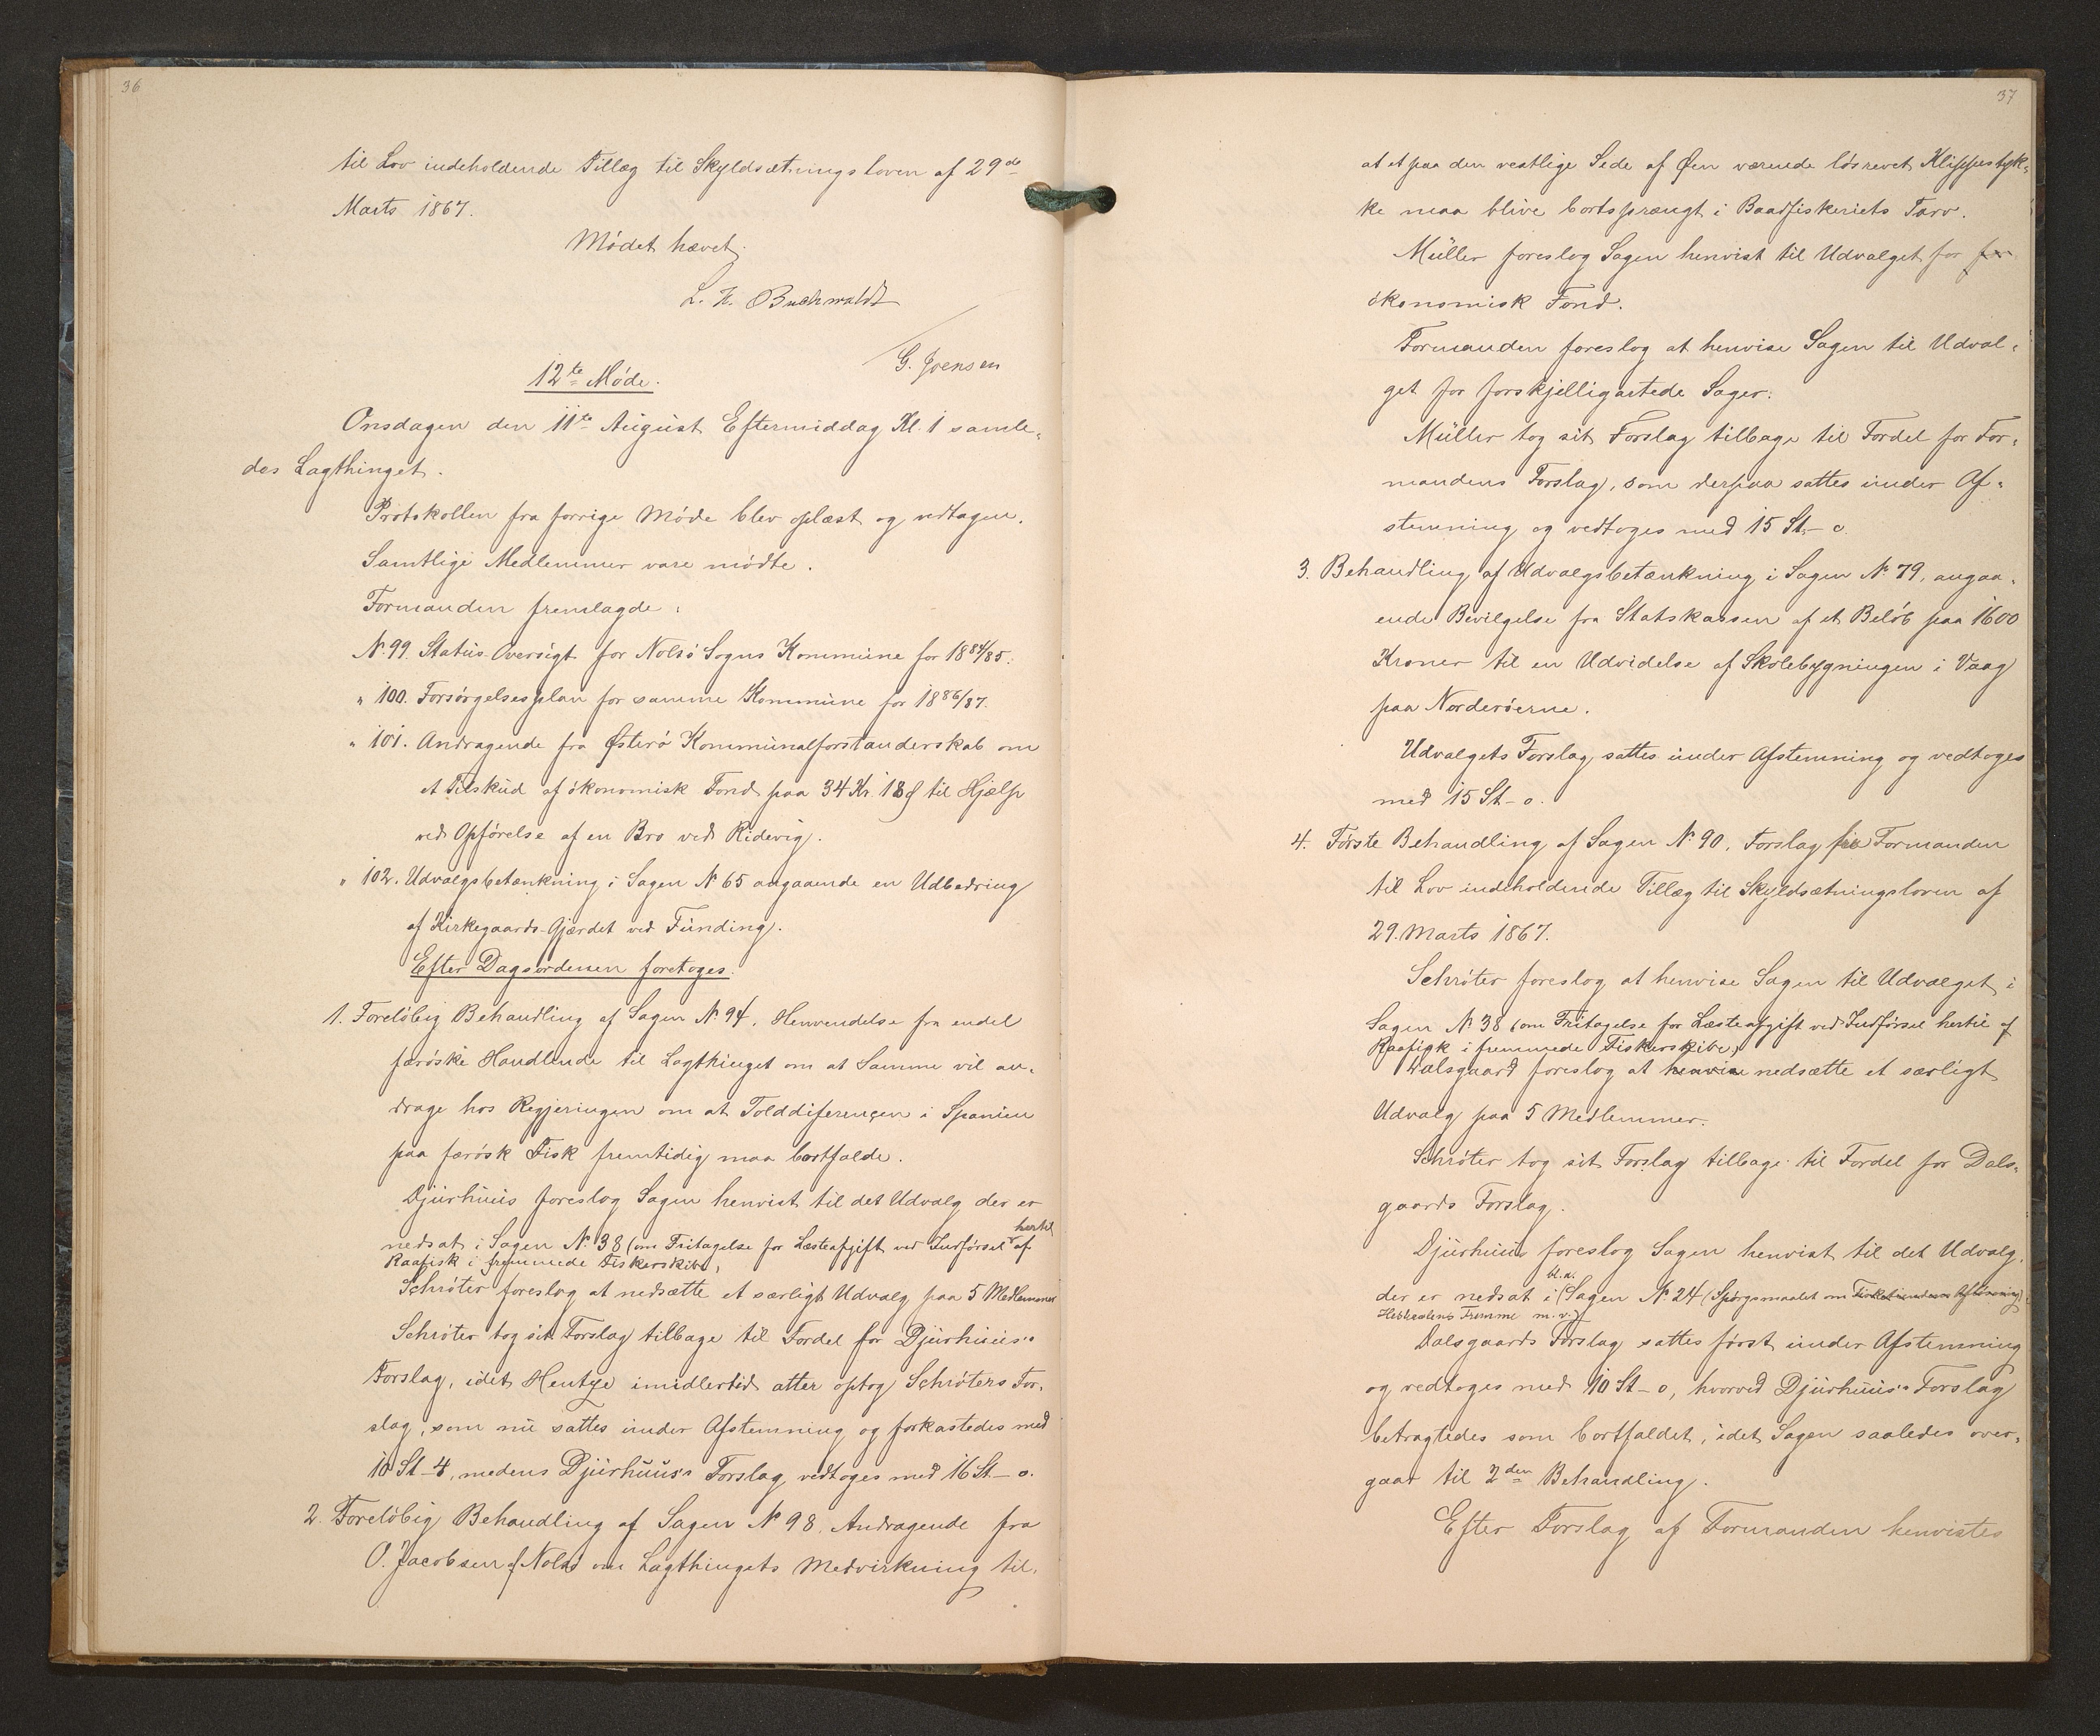 36
til Lov indeholdende Tillæg til Skyldsætningsloven af 29de
Marts 1867.
Mödet hævet.
L. H. Buchwaldt
G. Joensen
12te Möde.
Onsdagen den 11te August Eftermiddag Kl. 1 samle-
des Lagthinget.
Protokollen fra forrige Möde blev oplæst og vedtagen.
Samtlige Medlemmer vare mödte.
Formanden fremlagde:
N. 99. Status-Oversigt for Nolsö Sogns Kommune for 1884/85.
" 100. Forsörgelsesplan for samme Kommune for 1886/87.
" 101. Andragende fra Österö Kommunalforstanderskab om
et Tilskud af ökonomisk Fond paa 34 Kr. 18 Ø til Hjælp
ved Opförelse af en Bro ved Ridevig.
" 102. Udvalgsbetænkning i Sagen N 65 angaaende en Udbedring
af Kirkegaards-Gjærdet ved Funding.
Efter Dagsordenen foretoges.
1. Forelöbig Behandling af Sagen N. 94, Henvendelse fra endel
færöske Handlende til Lagthinget om at Samme vil an-
drage hos Regjeringen om at Tolddiferencen i Spanien
paa færösk Fisk fremtidig maa bortfalde.
Djurhuus foreslog Sagen henvist til det Udvalg der er
nedsat i Sagen N. 38 (om Fritagelse for Læsteafgift ved Indförsel hertil af
Raafisk i fremmede Fiskerskibe)
Schröter foreslog at nedsætte et særligt Udvalg paa 5 Medlemmer
Schröter tog sit Forslag tilbage til Fordel for Djurhuus's
Forslag, idet Hentze imidlertid atter optog Schröters For-
slag, som nu sattes under Afstemning og forkastedes med
10 St-4, medens Djurhuus's Forslag vedtoges med 16 St-0.
2. Forelöbig Behandling af Sagen N 98, Andragende fra
O. Jacobsen af Nolsö om Lagthingets Medvirkning til,
37
at et paa den vestlige Side af Øen værende lösrevet Klippestyk-
ke maa blive bortsprængt i Baadfiskeriets Tarv.
Müller foreslog Sagen henvist til Udvalget for for
ökonomisk Fond.
Formanden foreslog at henvise Sagen til Udval-
get for forskjelligartede Sager.
Müller tog sit Forslag tilbage til Fordel for For-
mandens Forslag, som derpaa sattes under Af-
stemning og vedtoges med 15 St-0.
3. Behandling af Udvalgsbetænkning i Sagen N. 79, angaa-
ende Bevilgelse fra Statskassen af et Belöb paa 1600
Kroner til en Udvidelse af Skolebygningen i Vaag
paa Norderöerne.
Udvalgets Forslag sattes under Afstemning og vedtoges
med 15 St-0.
4. Förste Behandling af Sagen N. 90, Forslag fra Formanden
til Lov indeholdende Tillæg til Skyldsætningsloven af
29. Marts 1867.
Schröter foreslog at henvise Sagen til Udvalget i
Sagen N 38 (om Fritagelse for Læsteafgift ved Indförsel hertil af
Raafisk i fremmede Fiskerskibe)
Dalsgaard foreslog at henvise nedsætte et særligt
Udvalg paa 5 Medlemmer.
Schröter tog sit Forslag tilbage til Fordel for Dals-
gaards Forslag.
Djurhuus foreslog Sagen henvist til det Udvalg,
der er nedsat i bl.a. (Sagen N. 24 (Spörgsmaalet om Afløsning)
Fremme m.v.)
Dalsgaards Forslag sattes först under Afstemning
og vedtoges med 10 St-0, hvorved Djurhuus's Forslag
betragtedes som bortfaldet, idet Sagen saaledes over-
gaar til 2den Behandling.
Efter Forslag af Formanden henvistes